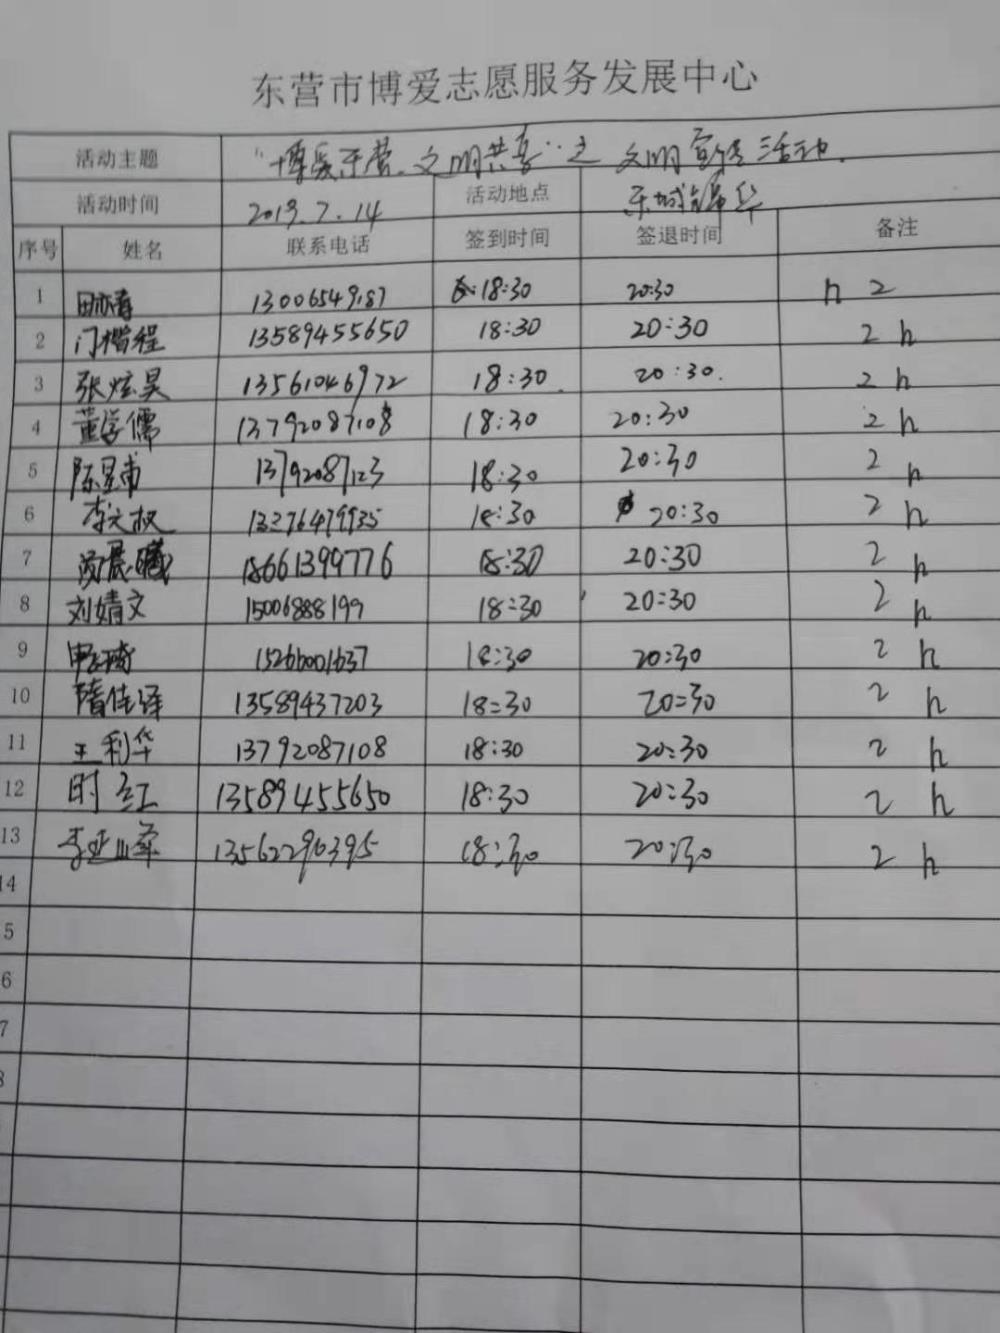 东营市博爱志愿服务发展中心
活动主题 "博爱东营.文明共享"之 文明宣传活动.
活动时间 2019.7.14 活动地点 东城锦华
序号 姓名 联系电话 签到时间 签退时间 备注
1 13006549187 18:30 20:30 h 2
2 门楷程 13589455650 18:30 20:30 2 h
3 张炫昊 13561046972 18:30. 20:30. 2 h
4 董学儒 13792087108 18:30 20:30 2 h
5 陈星甫 13792087123 18:30 20:30 2 h
6 李文权 13276479935 18:30 20:30 2 h
7 18661399776 18:30 20:30 2 h
8 刘婧文 15006888199 18:30 20:30 2 h
9 15266001637 18:30 20:30 2 h
10 隋佳译 13589437203 18:30 20:30 2 h
11 王利华 13792087108 18:30 20:30 2 h
12 时红 13589455650 18:30 20:30 2 h
13 李亚峰 13562296395 18:30 20:30 2 h
14
5
6
7
8